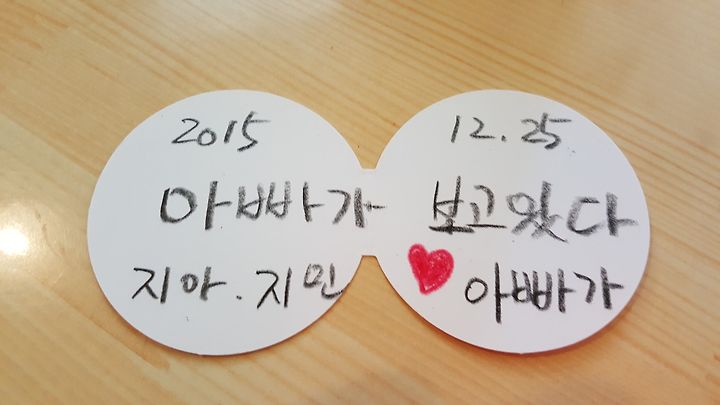 2015 12.25
아빠가 보고왔다
지아.지민 ♥ 아빠가